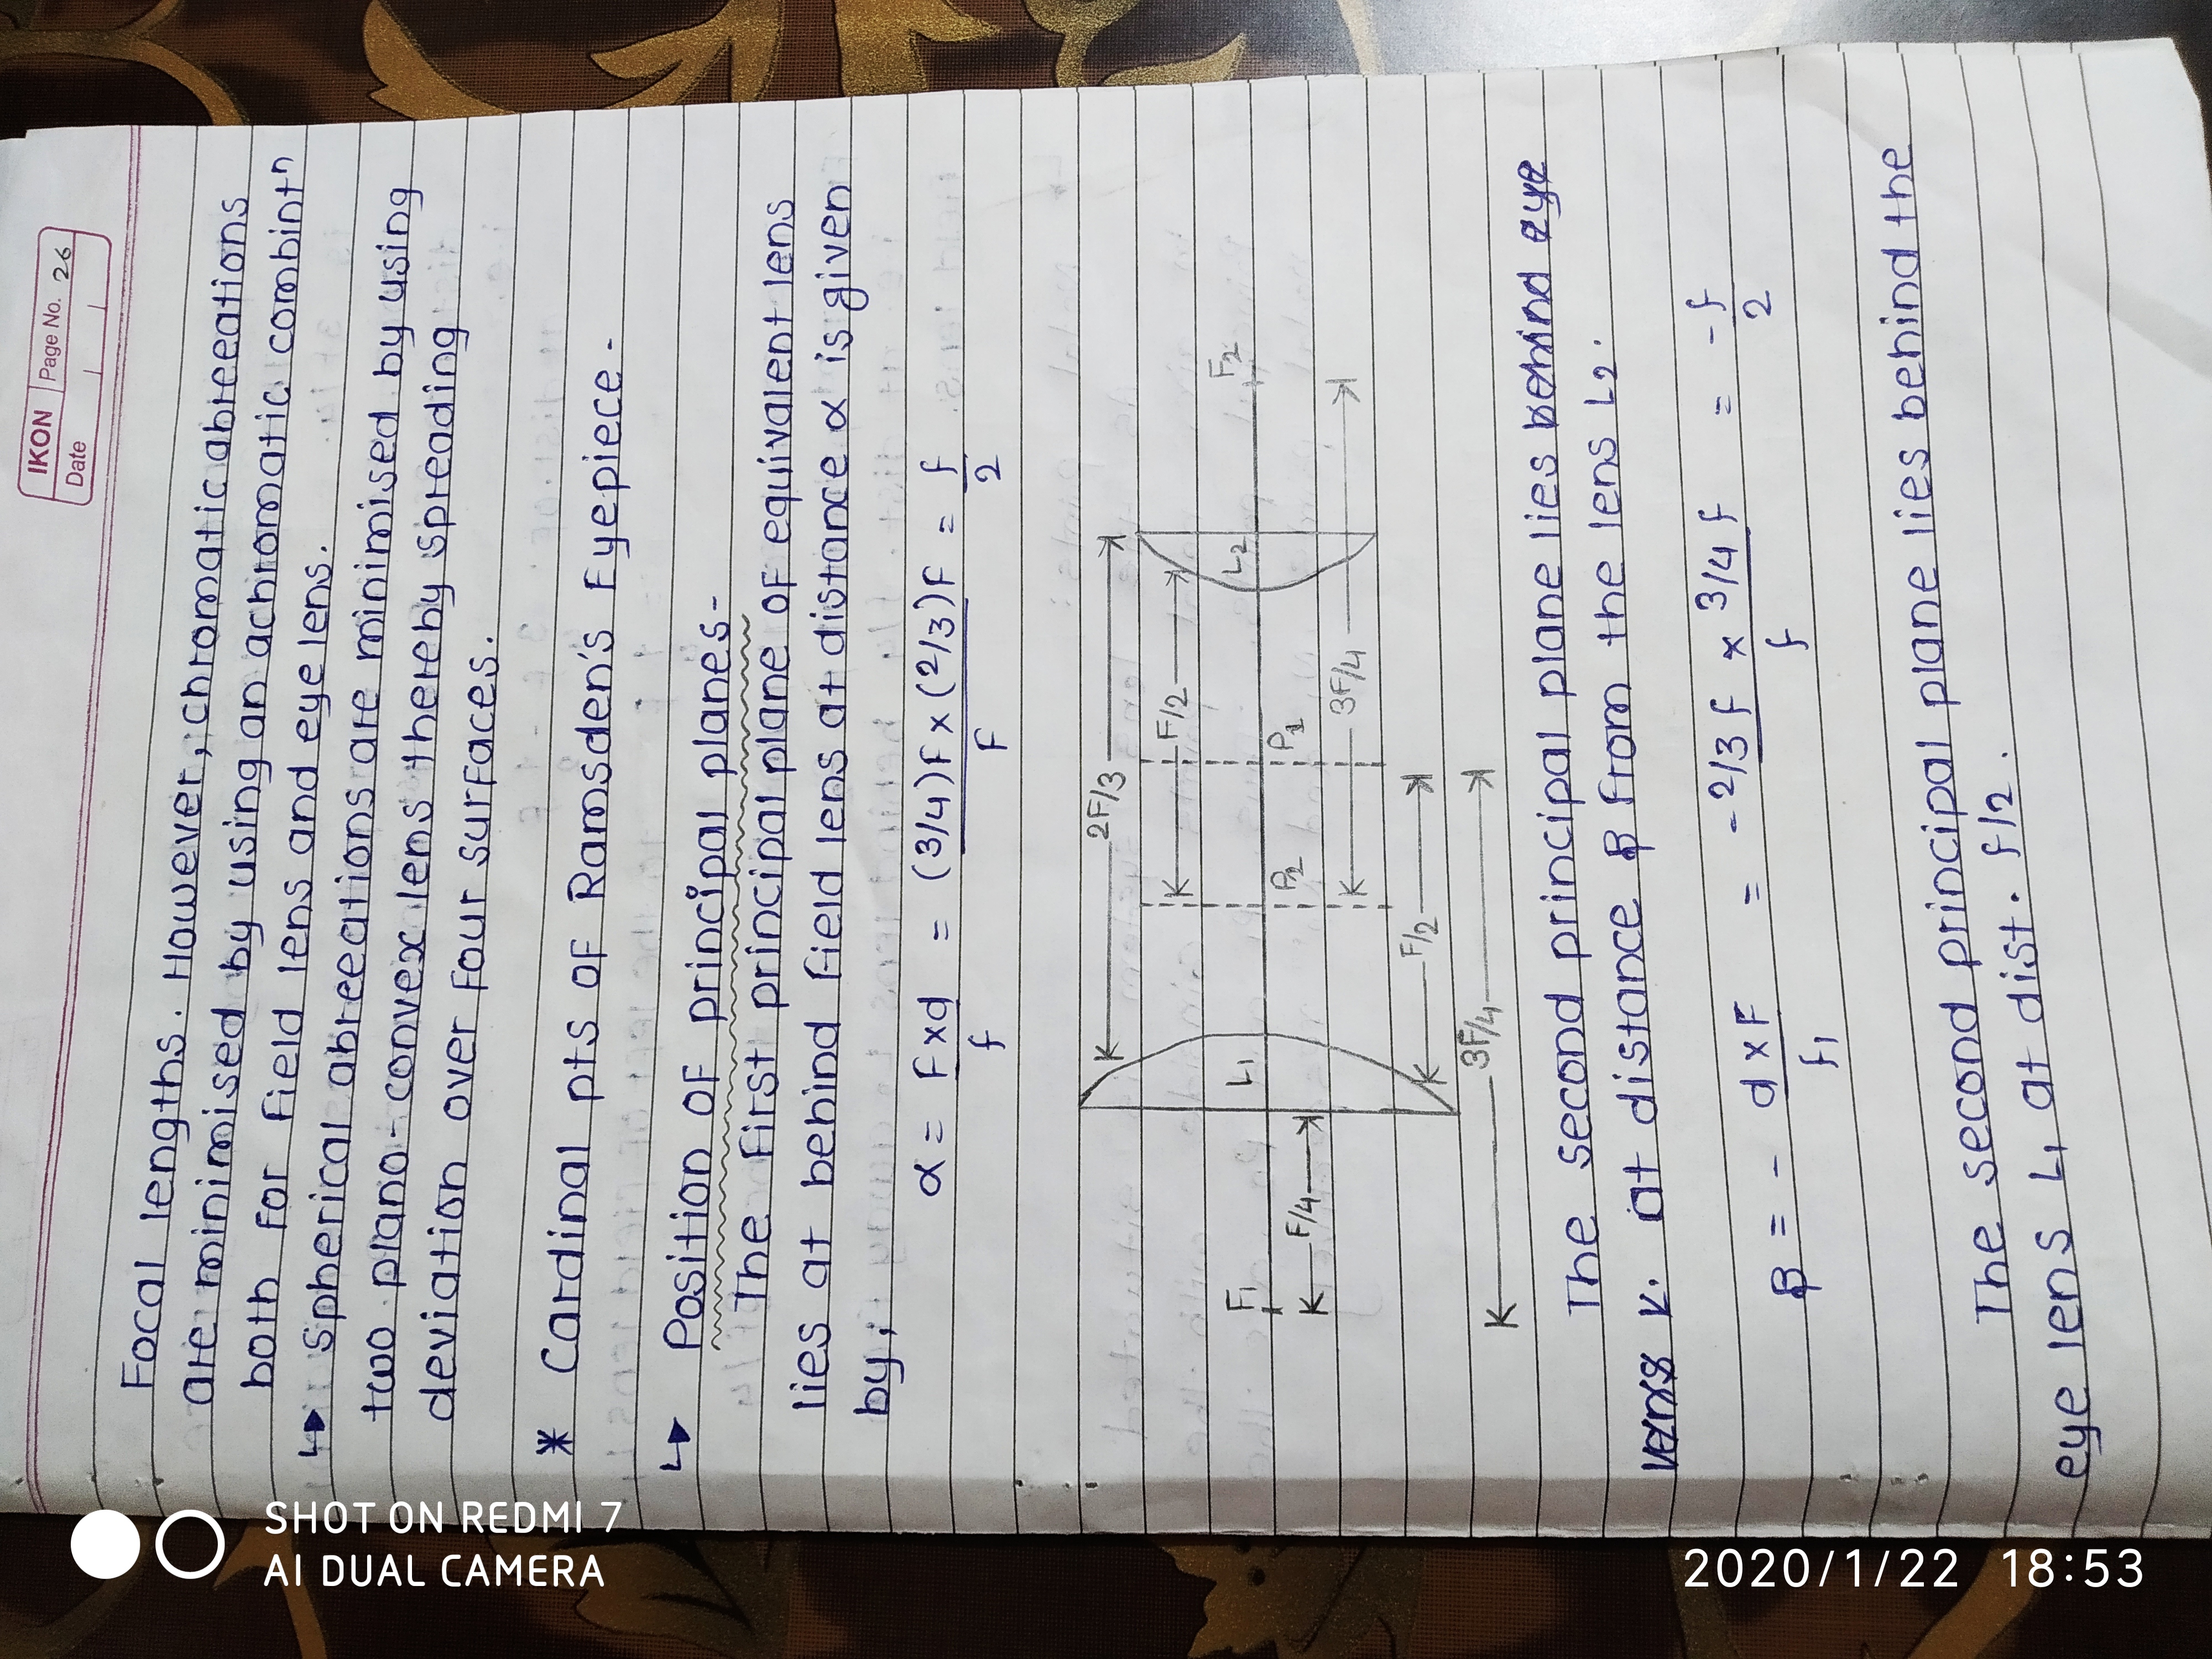 IKON Page No. 26
Date
Focal lengths. However, chromatic abreeations
are minimised by using an achromatic combintⁿ
both for field lens and eye lens.
↳ spherical abreeations are minimised by using
two plano-convex lens thereby spreading
deviation over four surfaces.
* Cardinal pts of Ramsden's Eyepiece -
↳ Position of principal planes-
The first principal plane of equivalent lens
lies at behind field lens at distance α is given
by,
α = F x d / f = (3/4)f x (2/3)F / F = f / 2
2F/3
F/2
F1 L1 P2 P1 L2 F2
F/4
3F/4
F/2
3F/4
The second principal plane lies behind eye
lens at distance β from the lens L2.
β = - d x F / f1 = - 2/3 f x 3/4 f / f = - f / 2
The second principal plane lies behind the
eye lens L1 at dist. f/2.
SHOT ON REDMI 7
AI DUAL CAMERA
2020/1/22 18:53